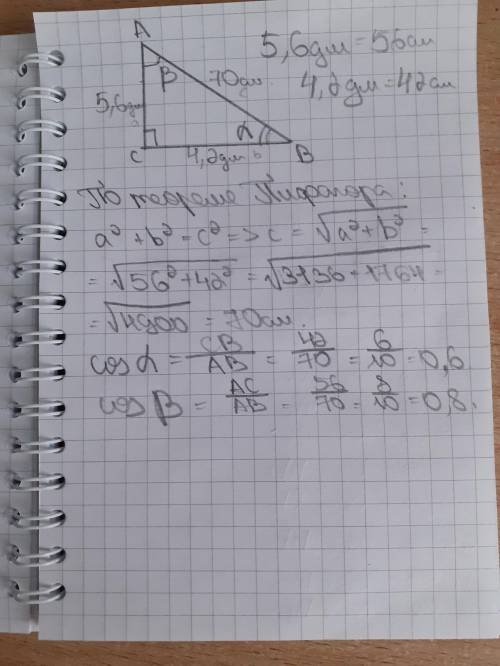 A
5,6дм = 56см
β
70см
4,2дм = 42см
5,6дм
a
α
C
4,2дм b
B
По теореме Пифагора:
a² + b² = c² => c = √a² + b² =
= √56² + 42² = √3136 + 1764 =
= √4900 = 70см.
cos α = CB/AB = 42/70 = 6/10 = 0,6
cos β = AC/AB = 56/70 = 8/10 = 0,8.